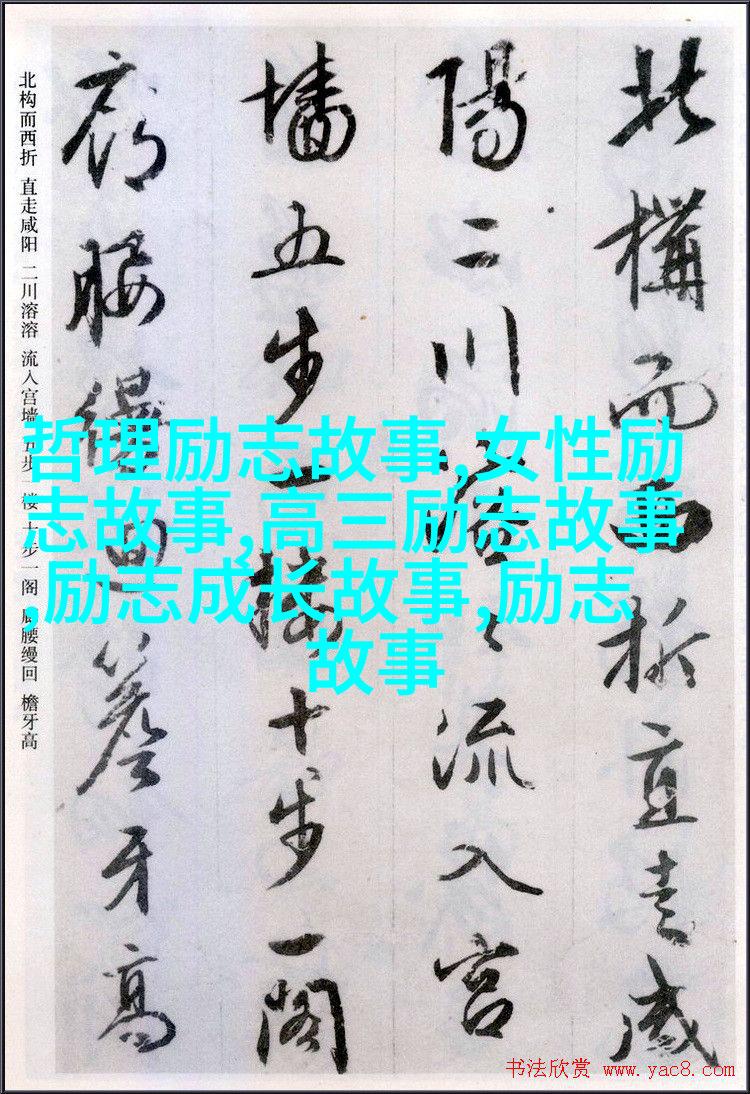 北構而西折直走咸
陽二川溶々流入宮
墙五步一樓十步一閣
廊腰縵迴簷牙高
北构而西折 直走咸阳 二川溶溶 流入宫墙 五步一楼 十步一阁 廊腰缦回 檐牙高
哲理励志故事,女性励
志故事,高三励志故事
,励志成长故事,励志
故事
书法欣赏 www.yac8.com